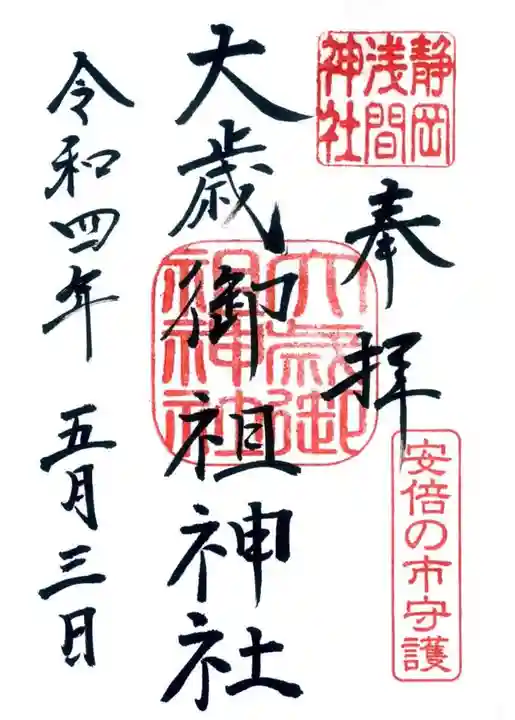 静岡
浅間
神社
奉拝
安倍の市守護
大歳御祖神社
大歳御
祖神社
令和四年 五月三日